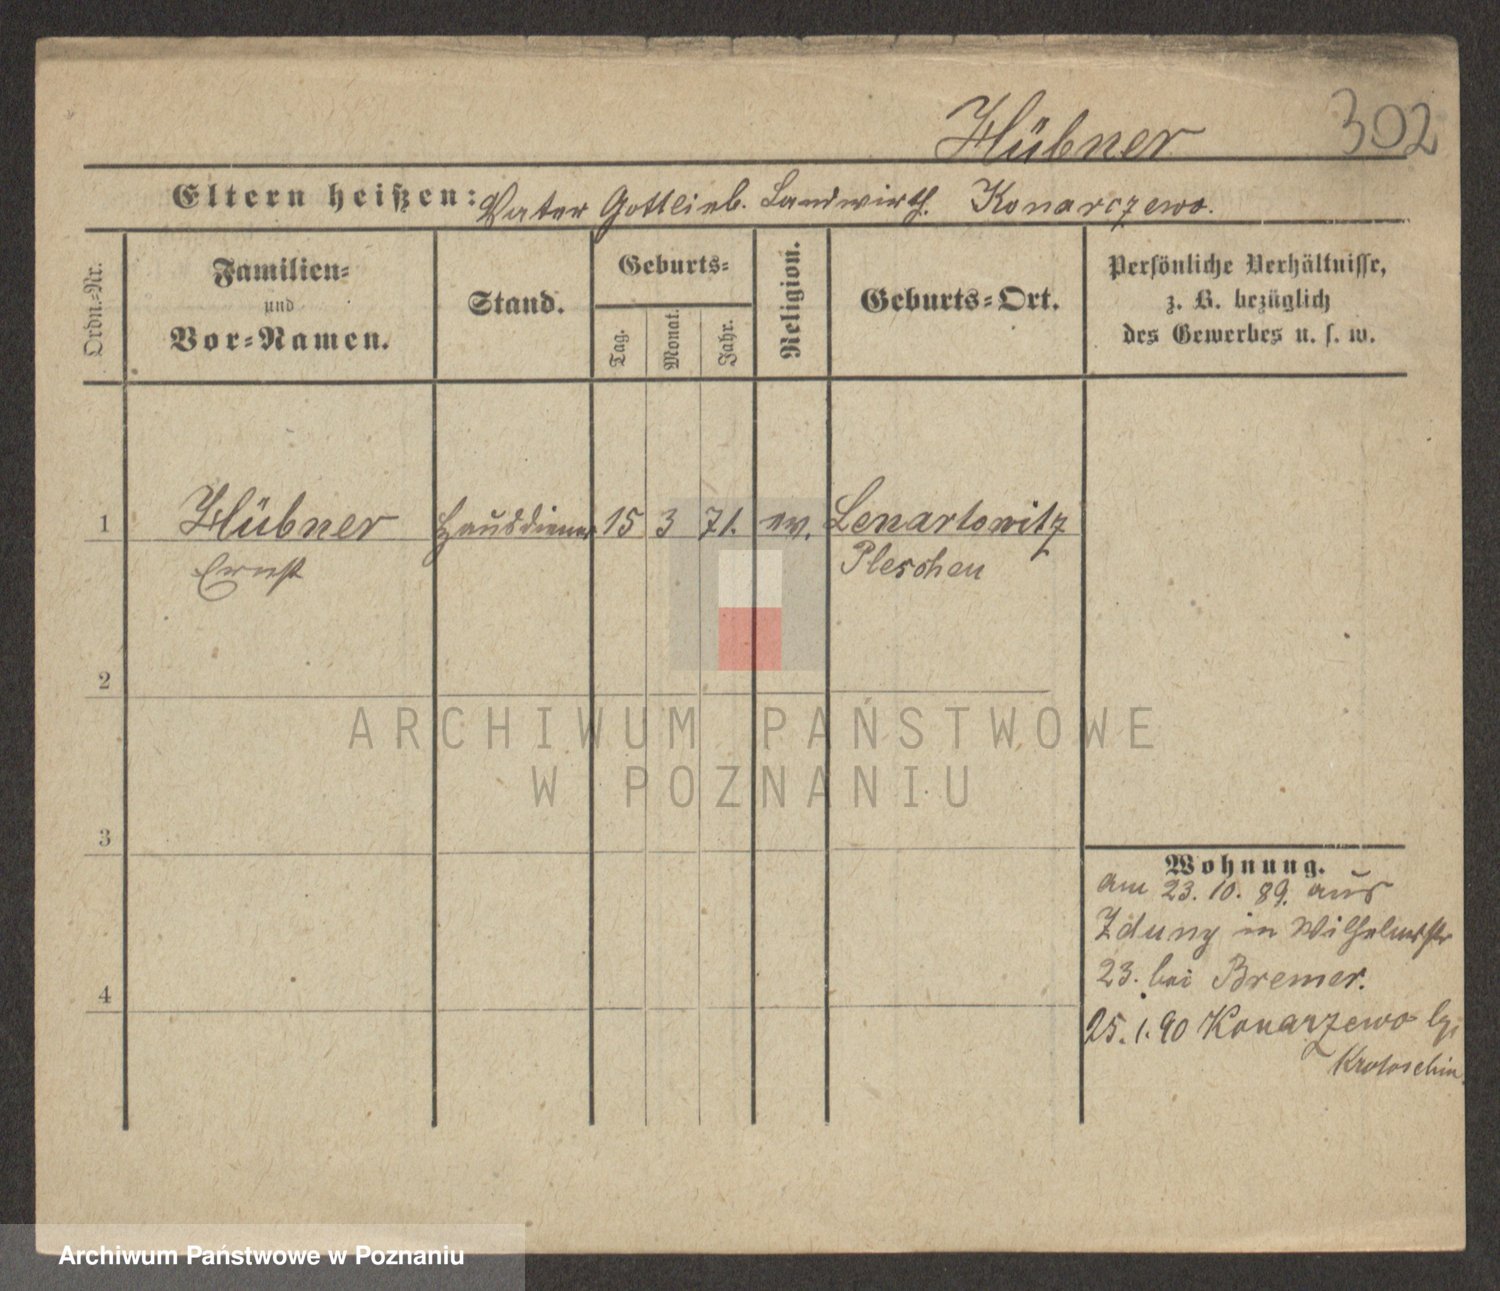 Hübner 302
Eltern heißen: Vater Gottlieb. Landwirth. Konarczewo.
Ordn.-Nr.
Familien-
und
Vor-Namen.
Stand.
Geburts-
Tag.
Monat.
Jahr.
Religion.
Geburts-Ort.
Persönliche Verhältnisse,
z. B. bezüglich
des Gewerbes u. s. w.
1 Hübner Hausdiener 15 3 71. ev. Lenartowitz
Ernst Pleschen
2
ARCHIWUM PAŃSTWOWE
W POZNANIU
3
Wohnung.
am 23. 10. 89. aus
Zduny in Wilhelmstr
23. bei Bremer.
4
25. 1. 90 Konarzewo
Krotoschin.
Archiwum Państwowe w Poznaniu